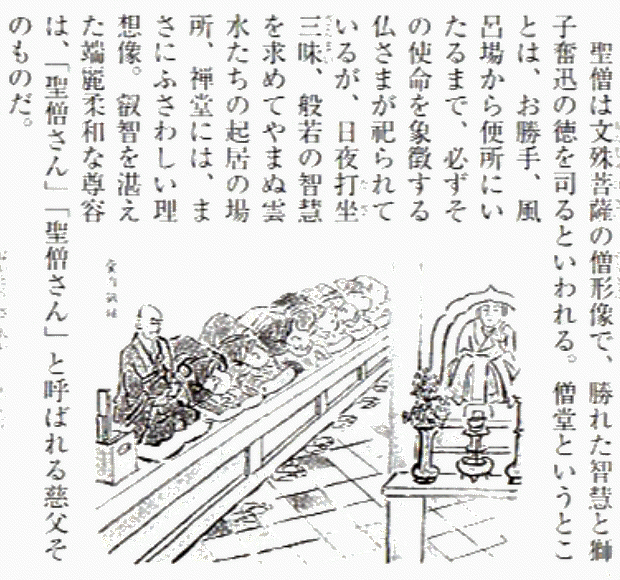 聖僧は文殊菩薩の僧形像で、勝れた智慧と獅
子奮迅の徳を司るといわれる。僧堂というとこ
とは、お勝手、風
呂場から便所にい
たるまで、必ずそ
の使命を象徴する
仏さまが祀られて
いるが、日夜打坐
三昧、般若の智慧
を求めてやまぬ雲
水たちの起居の場
所、禅堂には、ま
さにふさわしい理
想像。叡智を湛え
た端麗柔和な尊容
は、「聖僧さん」「聖僧さん」と呼ばれる慈父そ
のものだ。